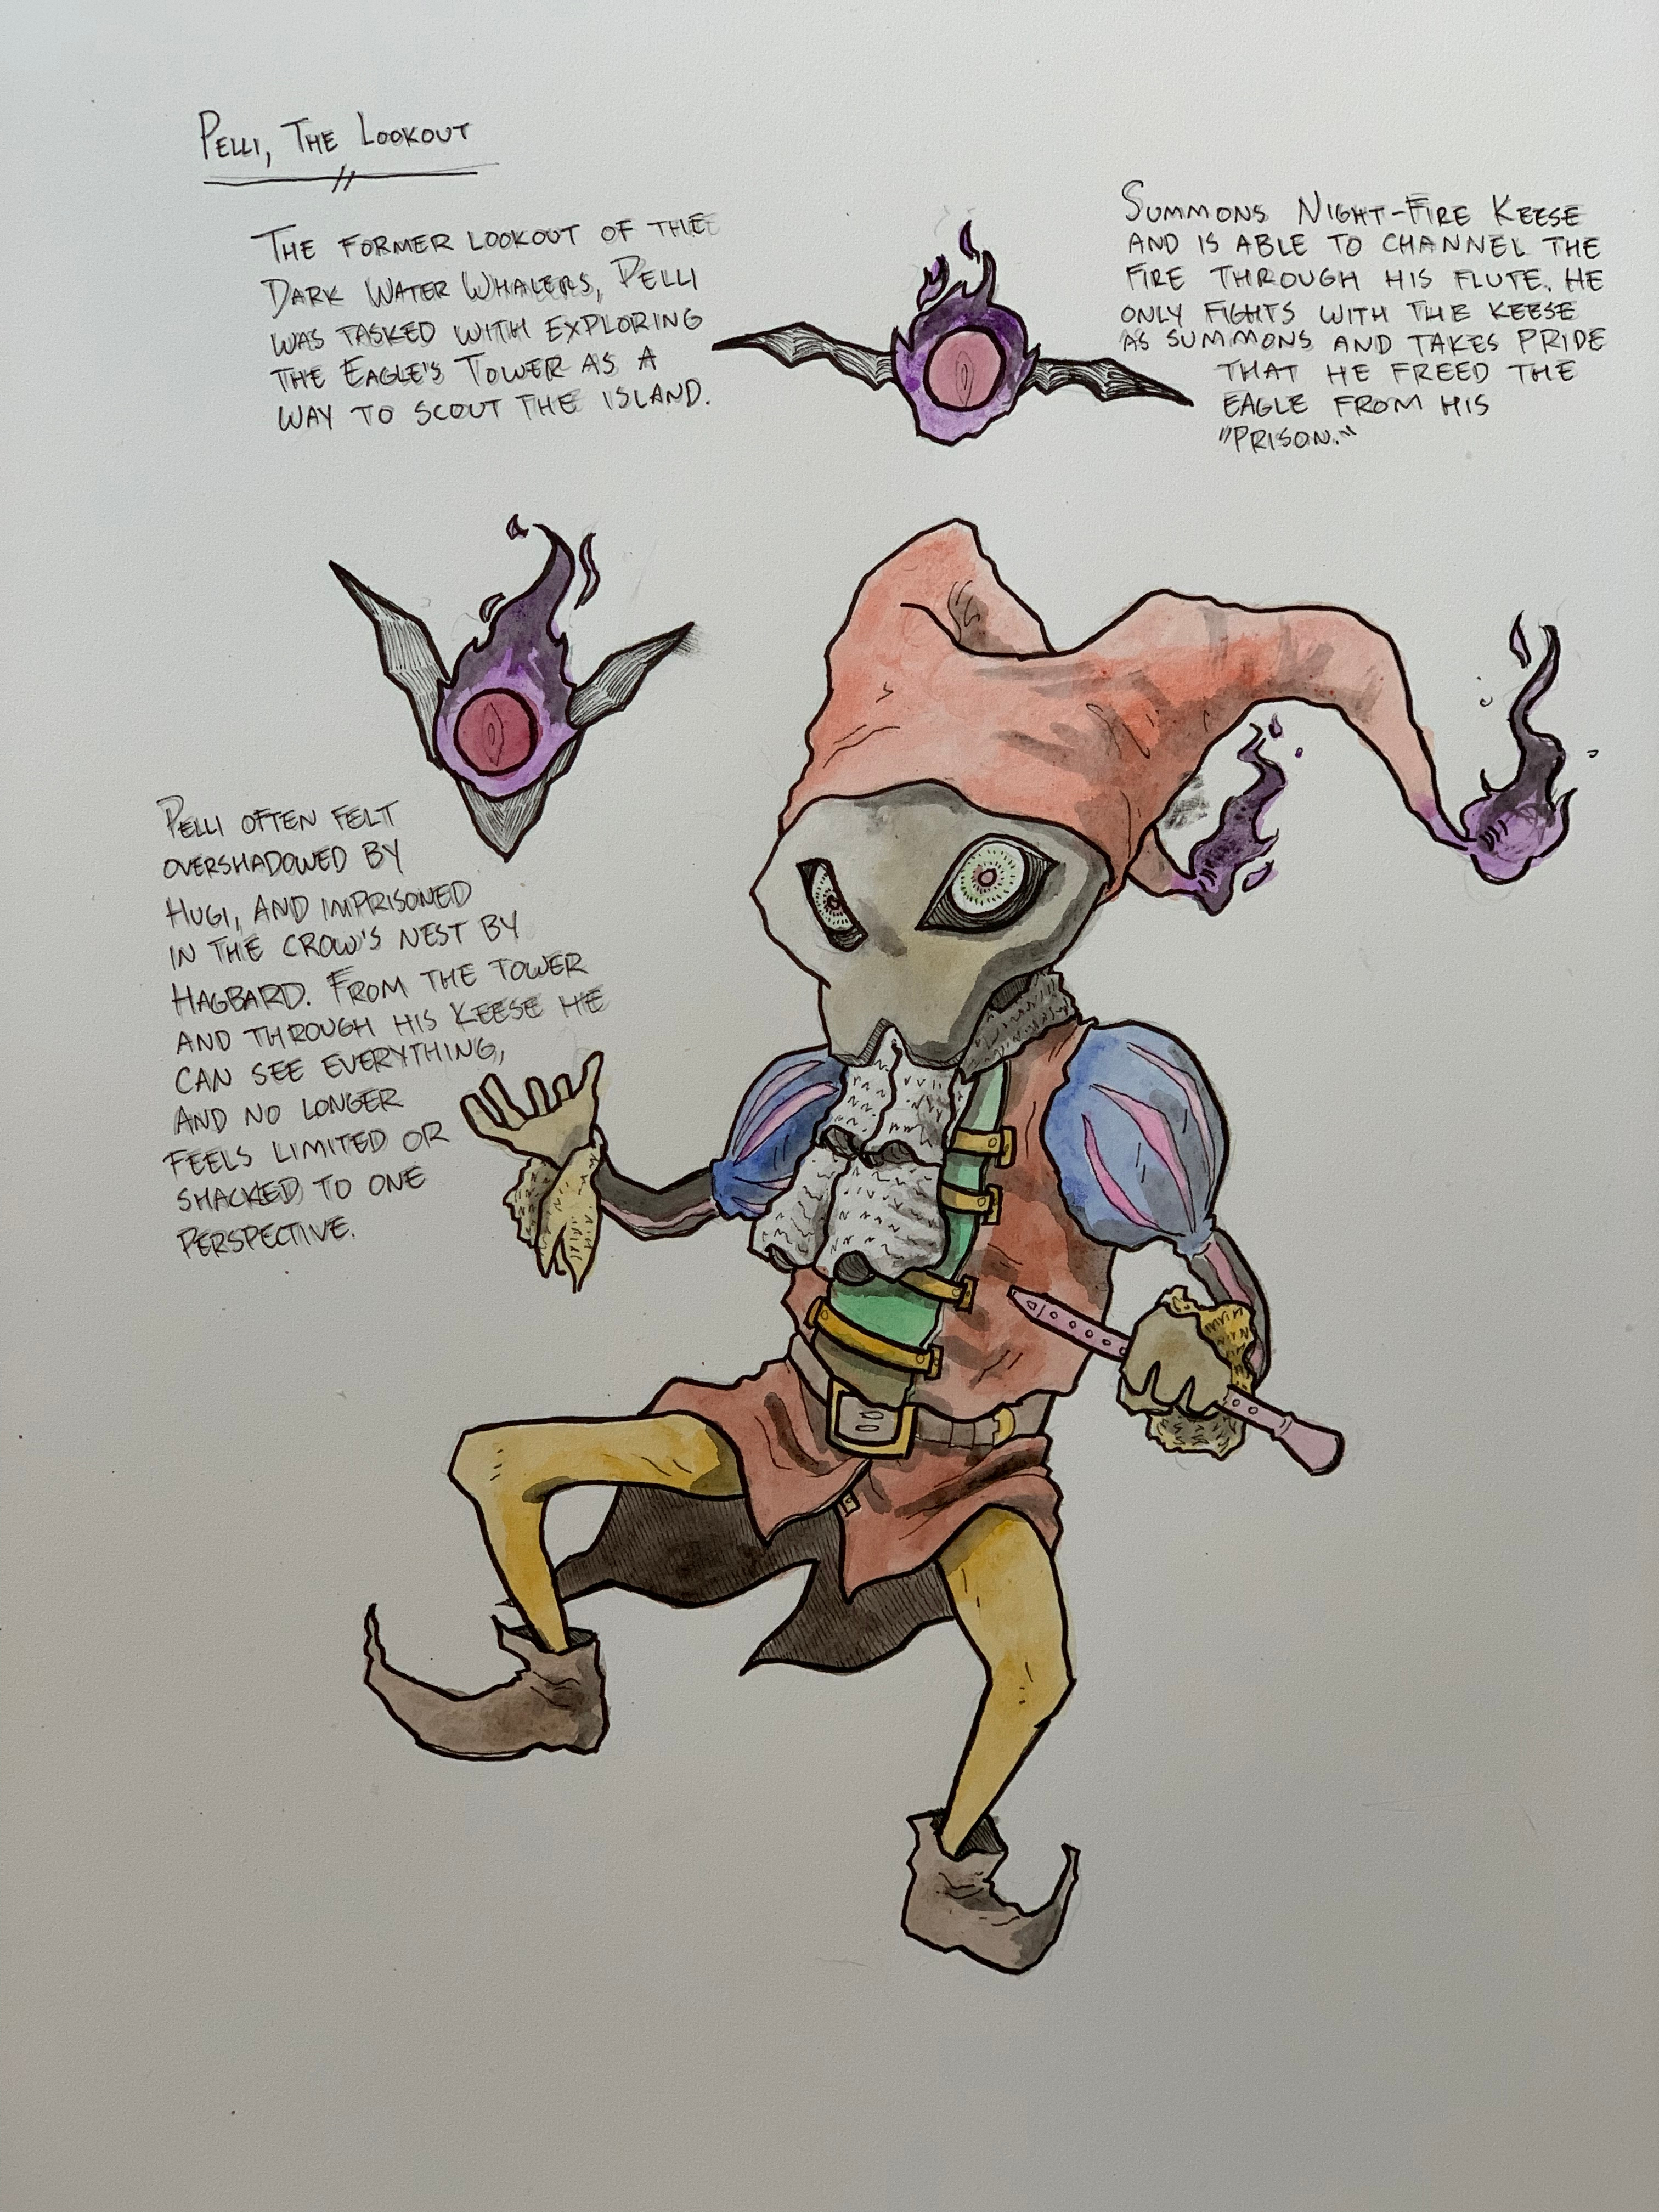 PELLI, THE LOOKOUT
THE FORMER LOOKOUT OF THE
DARK WATER WHALERS, PELLI
WAS TASKED WITH EXPLORING
THE EAGLE'S TOWER AS A
WAY TO SCOUT THE ISLAND.
SUMMONS NIGHT-FIRE KEESE
AND IS ABLE TO CHANNEL THE
FIRE THROUGH HIS FLUTE. HE
ONLY FIGHTS WITH THE KEESE
AS SUMMONS AND TAKES PRIDE
THAT HE FREED THE
EAGLE FROM HIS
"PRISON."
PELLI OFTEN FELT
OVERSHADOWED BY
HUGI, AND IMPRISONED
IN THE CROW'S NEST BY
HAGBARD. FROM THE TOWER
AND THROUGH HIS KEESE HE
CAN SEE EVERYTHING,
AND NO LONGER
FEELS LIMITED OR
SHACKED TO ONE
PERSPECTIVE.